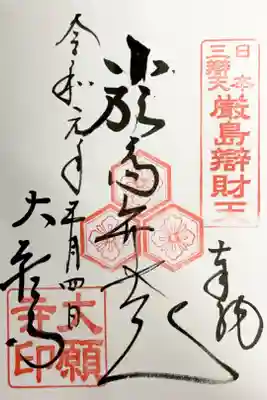 日本
三辯天
厳島辯財天
奉納
令和元年五月四日
大願寺
大願寺印